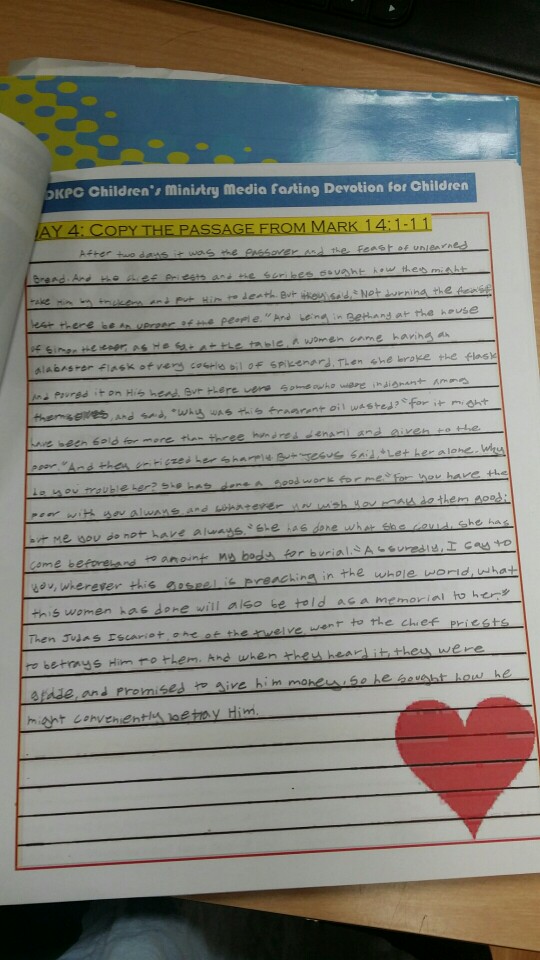 DKPC Children's Ministry Media Fasting Devotion for Children
AY 4: COPY THE PASSAGE FROM MARK 14:1-11
After two days it was the Passover and the Feast of unlearned
Bread. And the chief Priests and the scribes sought how they might
take Him by trickery and put Him to death. But they said, "Not durning the feast
lest there be an uproar of the people." And being in Bethany at the house
of Simon the leper, as He sat at the table, a women came having an
alabaster flask of very costly oil of spikenard. Then she broke the flask
and Poured it on His head. But there were some who were indignant among
themselves, and said, "Why was this fragrant oil wasted?" "for it might
have been sold for more than three hundred denarii and given to the
poor." And they criticzed her sharply. But Jesus said, "Let her alone. Why
do you trouble her? She has done a good work for me." For you have the
poor with you always, and whatever you wish you may do them good;
but Me you do not have always. "She has done what she could. She has
come beforehand to anoint My body for burial. "Assuredly, I say to
you, wherever this gospel is preaching in the whole world, what
this women has done will also be told as a memorial to her."
Then Judas Iscariot, one of the twelve, went to the chief priests
to betrays Him to them. And when they heard it, they were
and promised to give him money. So he sought how he
might conveniently betray Him.